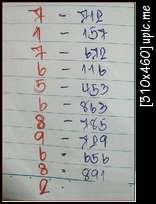 7 - 712
1 - 157
7 - 672
6 - 116
5 - 453
6 - 863
8 - 785
9 - 729
6 - 656
8 - 891
2
[310x460] upic.me